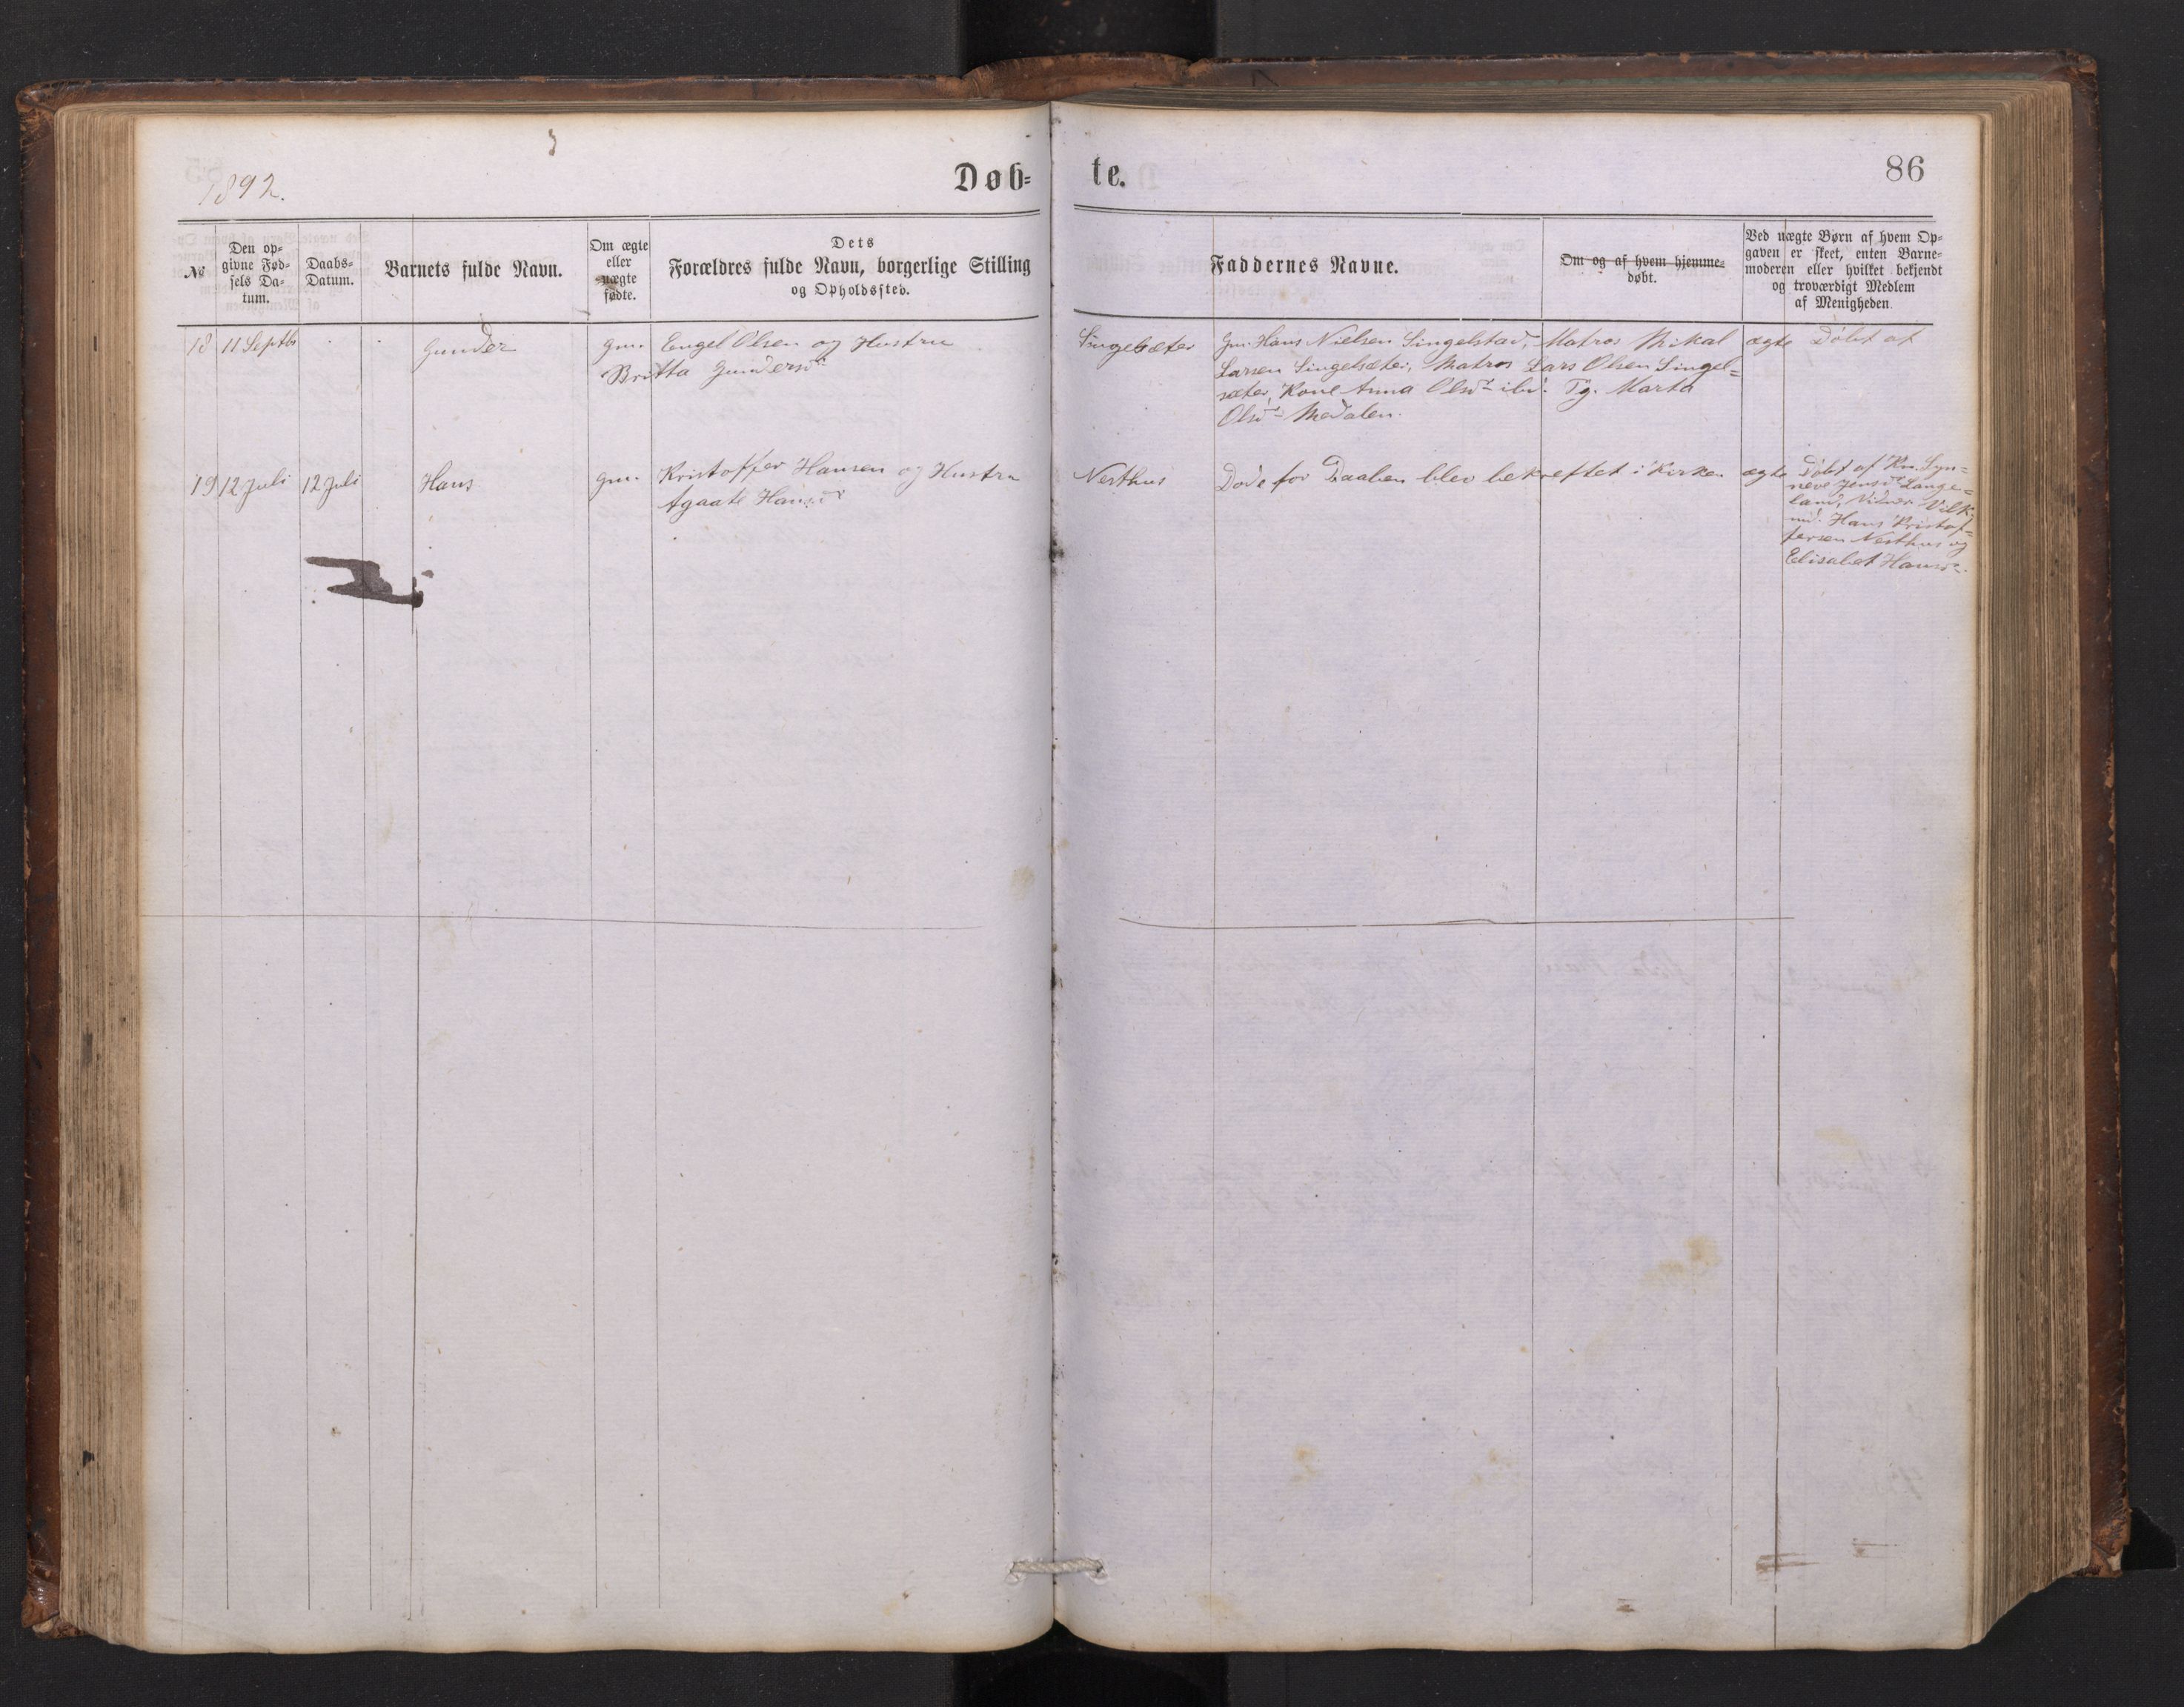 1892.
Døb-
te.
86
№
Den op-
givne Fød-
sels Da-
tum.
Daabs-
Datum.
Barnets fulde Navn.
Om ægte
eller
uægte
fødte.
Dets
Forældres fulde Navn, borgerlige Stilling
og Opholdssted.
Faddernes Navne.
Om og af hvem hjemme-
døbt.
Ved uægte Børn af hvem Op-
gaven er skeet, enten Barne-
moderen eller hvilket bekjendt
og troværdigt Medlem
af Menigheden.
18 11 Septbr Gunder gm. Engel Olsen og Hustru
Britta Gundersd.
Singelsæter Gm. Hans Nielsen Singelstad, Matros Mikal ægte Døbt af
Larsen Singelsæter, Matros Lars Olsen Singel=
sæter, Kone Anna Olsd. ibd. Pg. Marta
Olsd. Medalen.
19 12 Juli 12 Juli Hans gm. Kristoffer Hansen og Hustru
Agaate Hansd.
Nesthus Døde før Daaben blev bekræftet i Kirken ægte Døbt af Kn. Syn=
neve Jensd. Lange=
land, Vidner
Hans Kristof=
fersen Nesthus og
Elisabet Hansd.